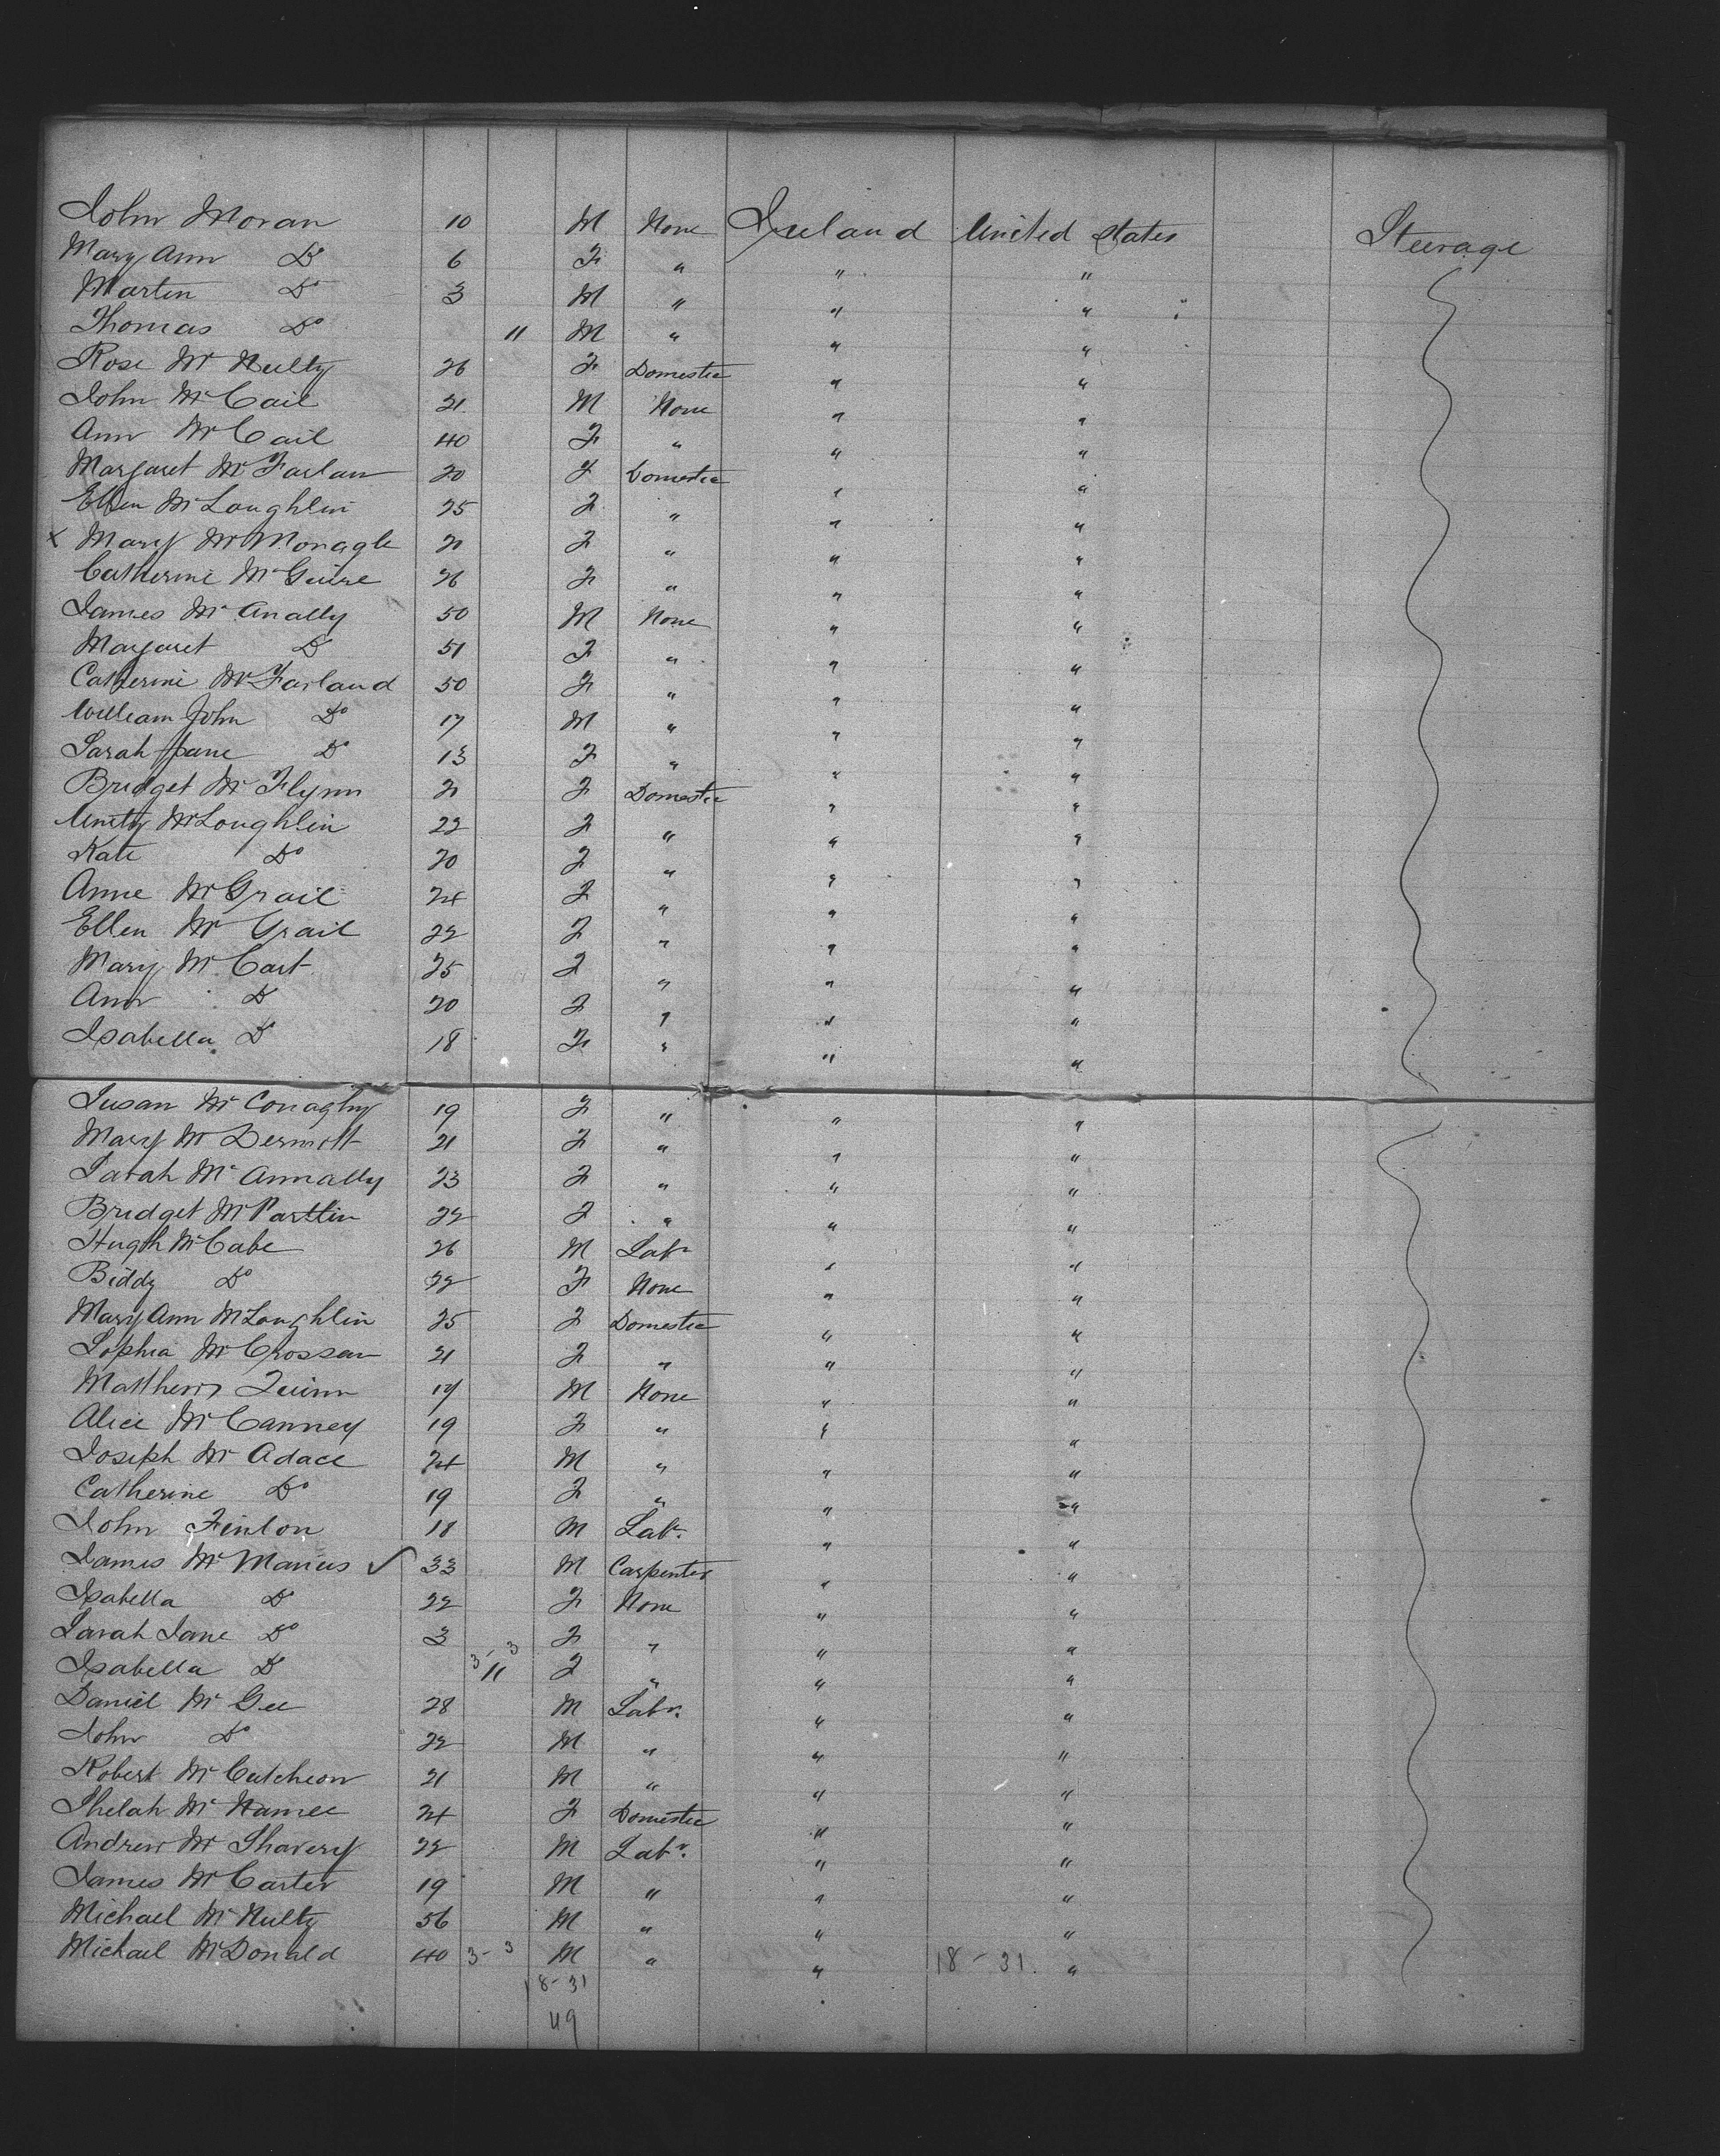 John Moran 10 M None Ireland United States Steerage
Mary Ann Do 6 F " " "
Martin Do 3 M " " "
Thomas Do 11 M " " "
Rose McNulty 26 F Domestic " "
John McCail 21 M None " "
Ann McCail 40 F " " "
Margaret McFarlan 20 F Domestic " "
Ellen McLoughlin 25 F " " "
x Mary McMonagle 20 F " " "
Catherine McGuire 26 F " " "
James McAnally 50 M None " "
Margaret Do 51 F " " "
Catherine McFarland 50 F " " "
William John Do 17 M " " "
Sarah Jane Do 13 F " " "
Bridget McFlynn 21 F Domestic " "
Unity McLoughlin 22 F " " "
Kate Do 20 F " " "
Anne McGrail 24 F " " "
Ellen McGrail 22 F " " "
Mary McCart 25 F " " "
Ann Do 20 F " " "
Isabella Do 18 F " " "
Susan McConaghy 19 F " " "
Mary McDermott 21 F " " "
Sarah McAnnally 23 F " " "
Bridget McParttin 22 F " " "
Hugh McCabe 26 M Labr " "
Biddy Do 22 F None " "
Mary Ann McLoughlin 25 F Domestic " "
Sophia McCrossan 21 F " " "
Matthew Quinn 17 M None " "
Alice McCanney 19 F " " "
Joseph McAdace 24 M " " "
Catherine Do 19 F " " "
John Finlon 18 M Labr. " "
James McManus ✓ 33 M Carpenter " "
Isabella Do 22 F None " "
Sarah Jane Do 3 F " " "
Isabella Do 3-3 11 F " " "
Daniel McGee 28 M Labr. " "
John Do 22 M " " "
Robert McCutcheon 21 M " " "
Shelah McNamee 24 F Domestic " "
Andrew McShavery 22 M Labr. " "
James McCarter 19 M " " "
Michael McNulty 56 M " " "
Michael McDonald 40 3-3 M " " 18-31. "
18-31
49